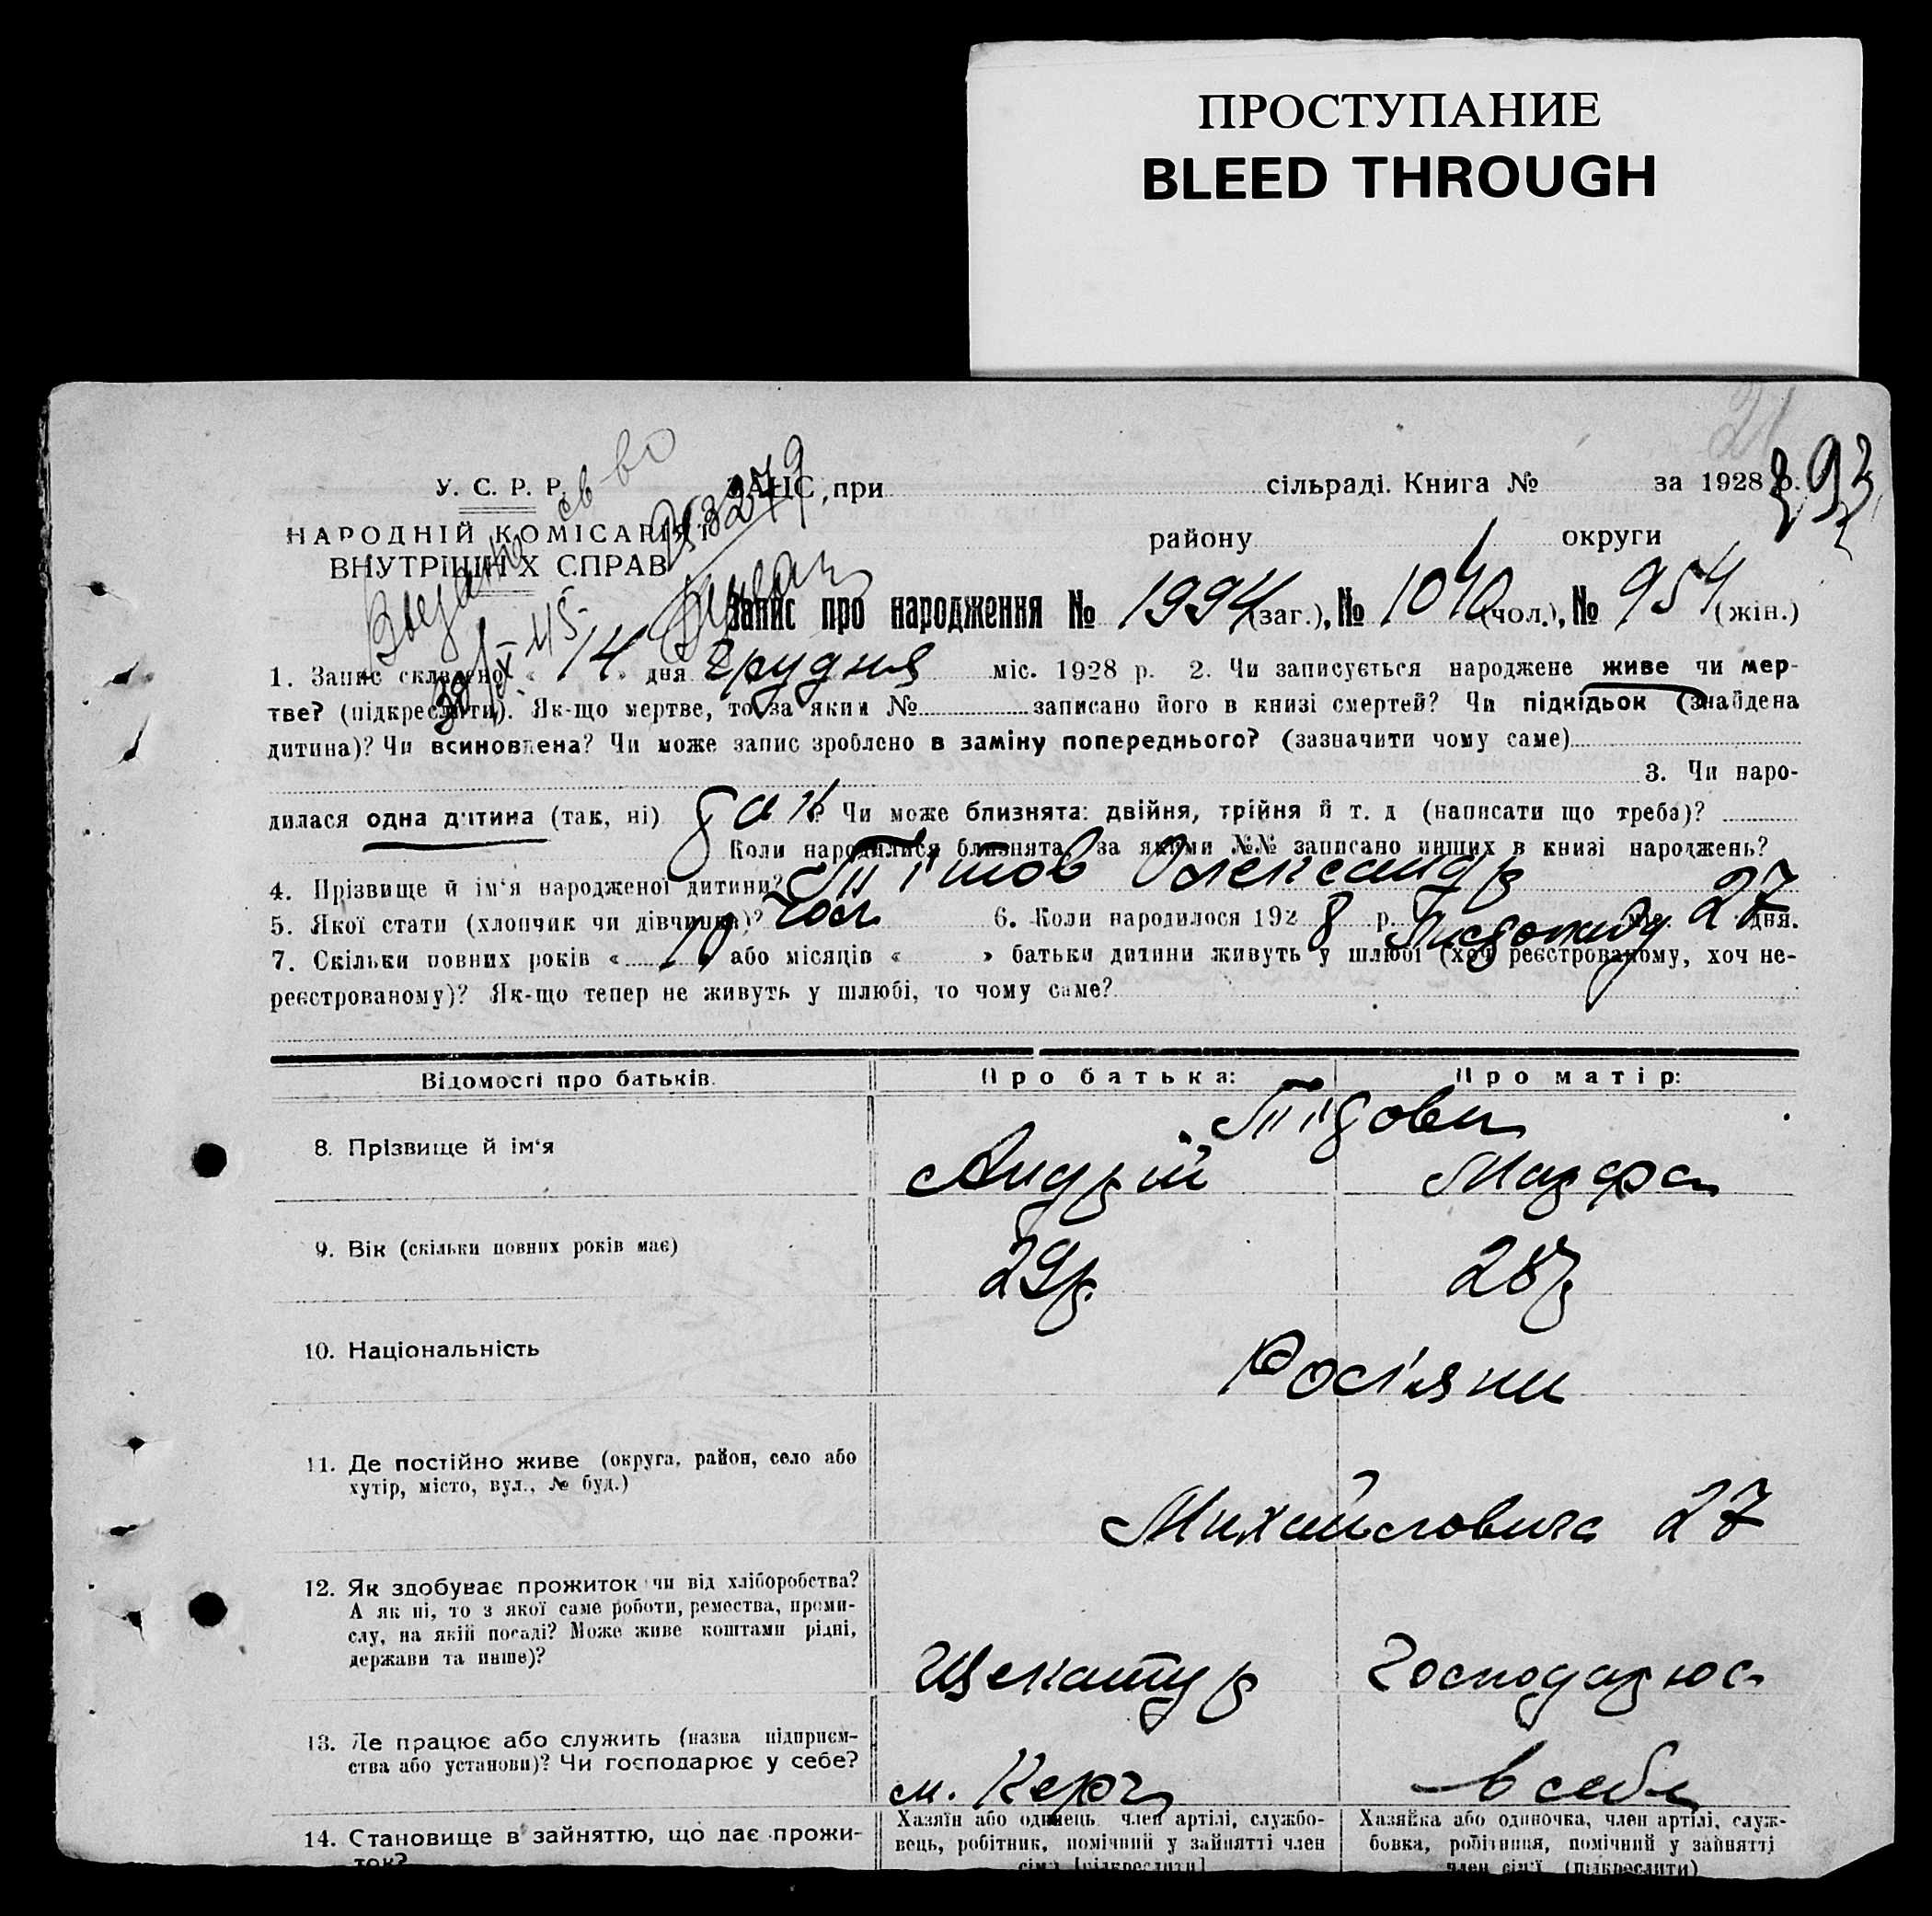 ПРОСТУПАНИЕ
BLEED THROUGH
21
293
У. С. Р. Р.
ЗАЦС, при сільраді. Книга № за 1928 р.
НАРОДНІЙ КОМІСАРІЯТ
ВНУТРІШНІХ СПРАВ
району округи
св-во
Запис про народження № 1994 (заг.), № 1040 (чол.), № 954 (жін.)
1. Запис складено « 14 » дня грудня міс. 1928 р. 2. Чи записується народжене живе чи мер-
тве? (підкреслити). Як-що мертве, то за яким № записано його в книзі смертей? Чи підкідьок (знайдена
дитина)? Чи всиновлена? Чи може запис зроблено в заміну попереднього? (зазначити чому саме)
3. Чи наро-
дилася одна дитина (так, ні) так? Чи може близнята: двійня, трійня й т. д (написати що треба)?
Коли народилися близнята, за якими №№ записано инших в книзі народжень?
4. Прізвище й ім'я народженої дитини? Тітов Олександр
5. Якої стати (хлопчик чи дівчинка)? чол 6. Коли народилося 1928 р. Листопаду міс. 27 дня.
7. Скільки повних років « 10 » або місяців « » батьки дитини живуть у шлюбі (хоч реєстрованому, хоч не-
реєстрованому)? Як-що тепер не живуть у шлюбі, то чому саме?
Відомості про батьків. Про батька: Про матір:
Тітови
8. Прізвище й ім'я Андрій Марфа
9. Вік (скільки повних років має) 29р. 28р
10. Національність Росіяни
11. Де постійно живе (округа, район, село або
хутір, місто, вул., № буд.)
Михайловича 27
12. Як здобуває прожиток чи від хліборобства?
А як ні, то з якої саме роботи, ремества, проми-
слу, на якій посаді? Може живе коштами рідні,
держави та инше)?
Щекатур Господарює
13. Де працює або служить (назва підприєм-
ства або установи)? Чи господарює у себе?
м. Керч в себе
14. Становище в зайняттю, що дає прожи-
ток?
Хазяїн або одинець член артілі, службо-
вець, робітник, помічний у зайнятті член
сім'ї [підкреслити]
Хазяйка або одиночка, член артілі, служ-
бовка, робітниця, помічний у зайнятті
член сім'ї (підкреслити)